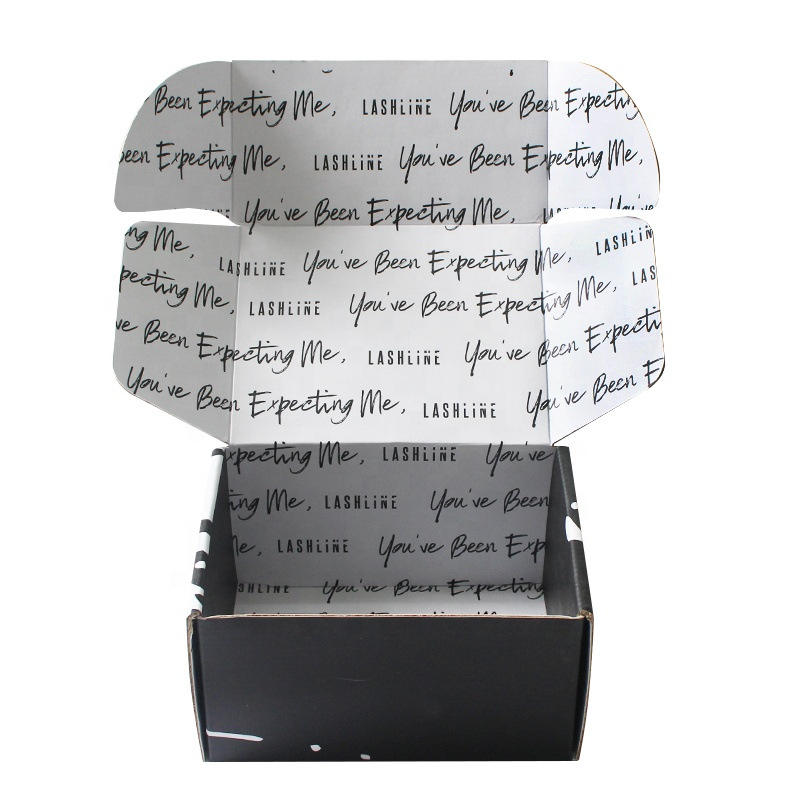 Been Expecting Me, LASHLINE You've Been Expecting
Been Expecting Me, LASHLINE You've Been Expecting Me,
You've Been Expecting Me,
Me, LASHLINE You've Been Expecting Me, LASHLINE
Expecting Me, LASHLINE You've Been Expecting Me,
Been Expecting Me, LASHLINE You've Been
You've Been Expecting Me, LASHLINE You've Been
Expecting Me, LASHLINE You've
Me, LASHLINE You've Been
LASHLINE You've Been
You've Been Expecting